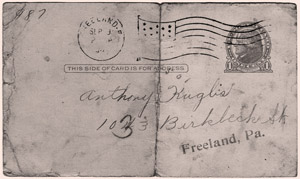 987
FREELAND, PA.
SEP
THIS SIDE OF CARD IS FOR ADDRESS
Anthony Kuglis
1023 Birkbeck St
Freeland, Pa.